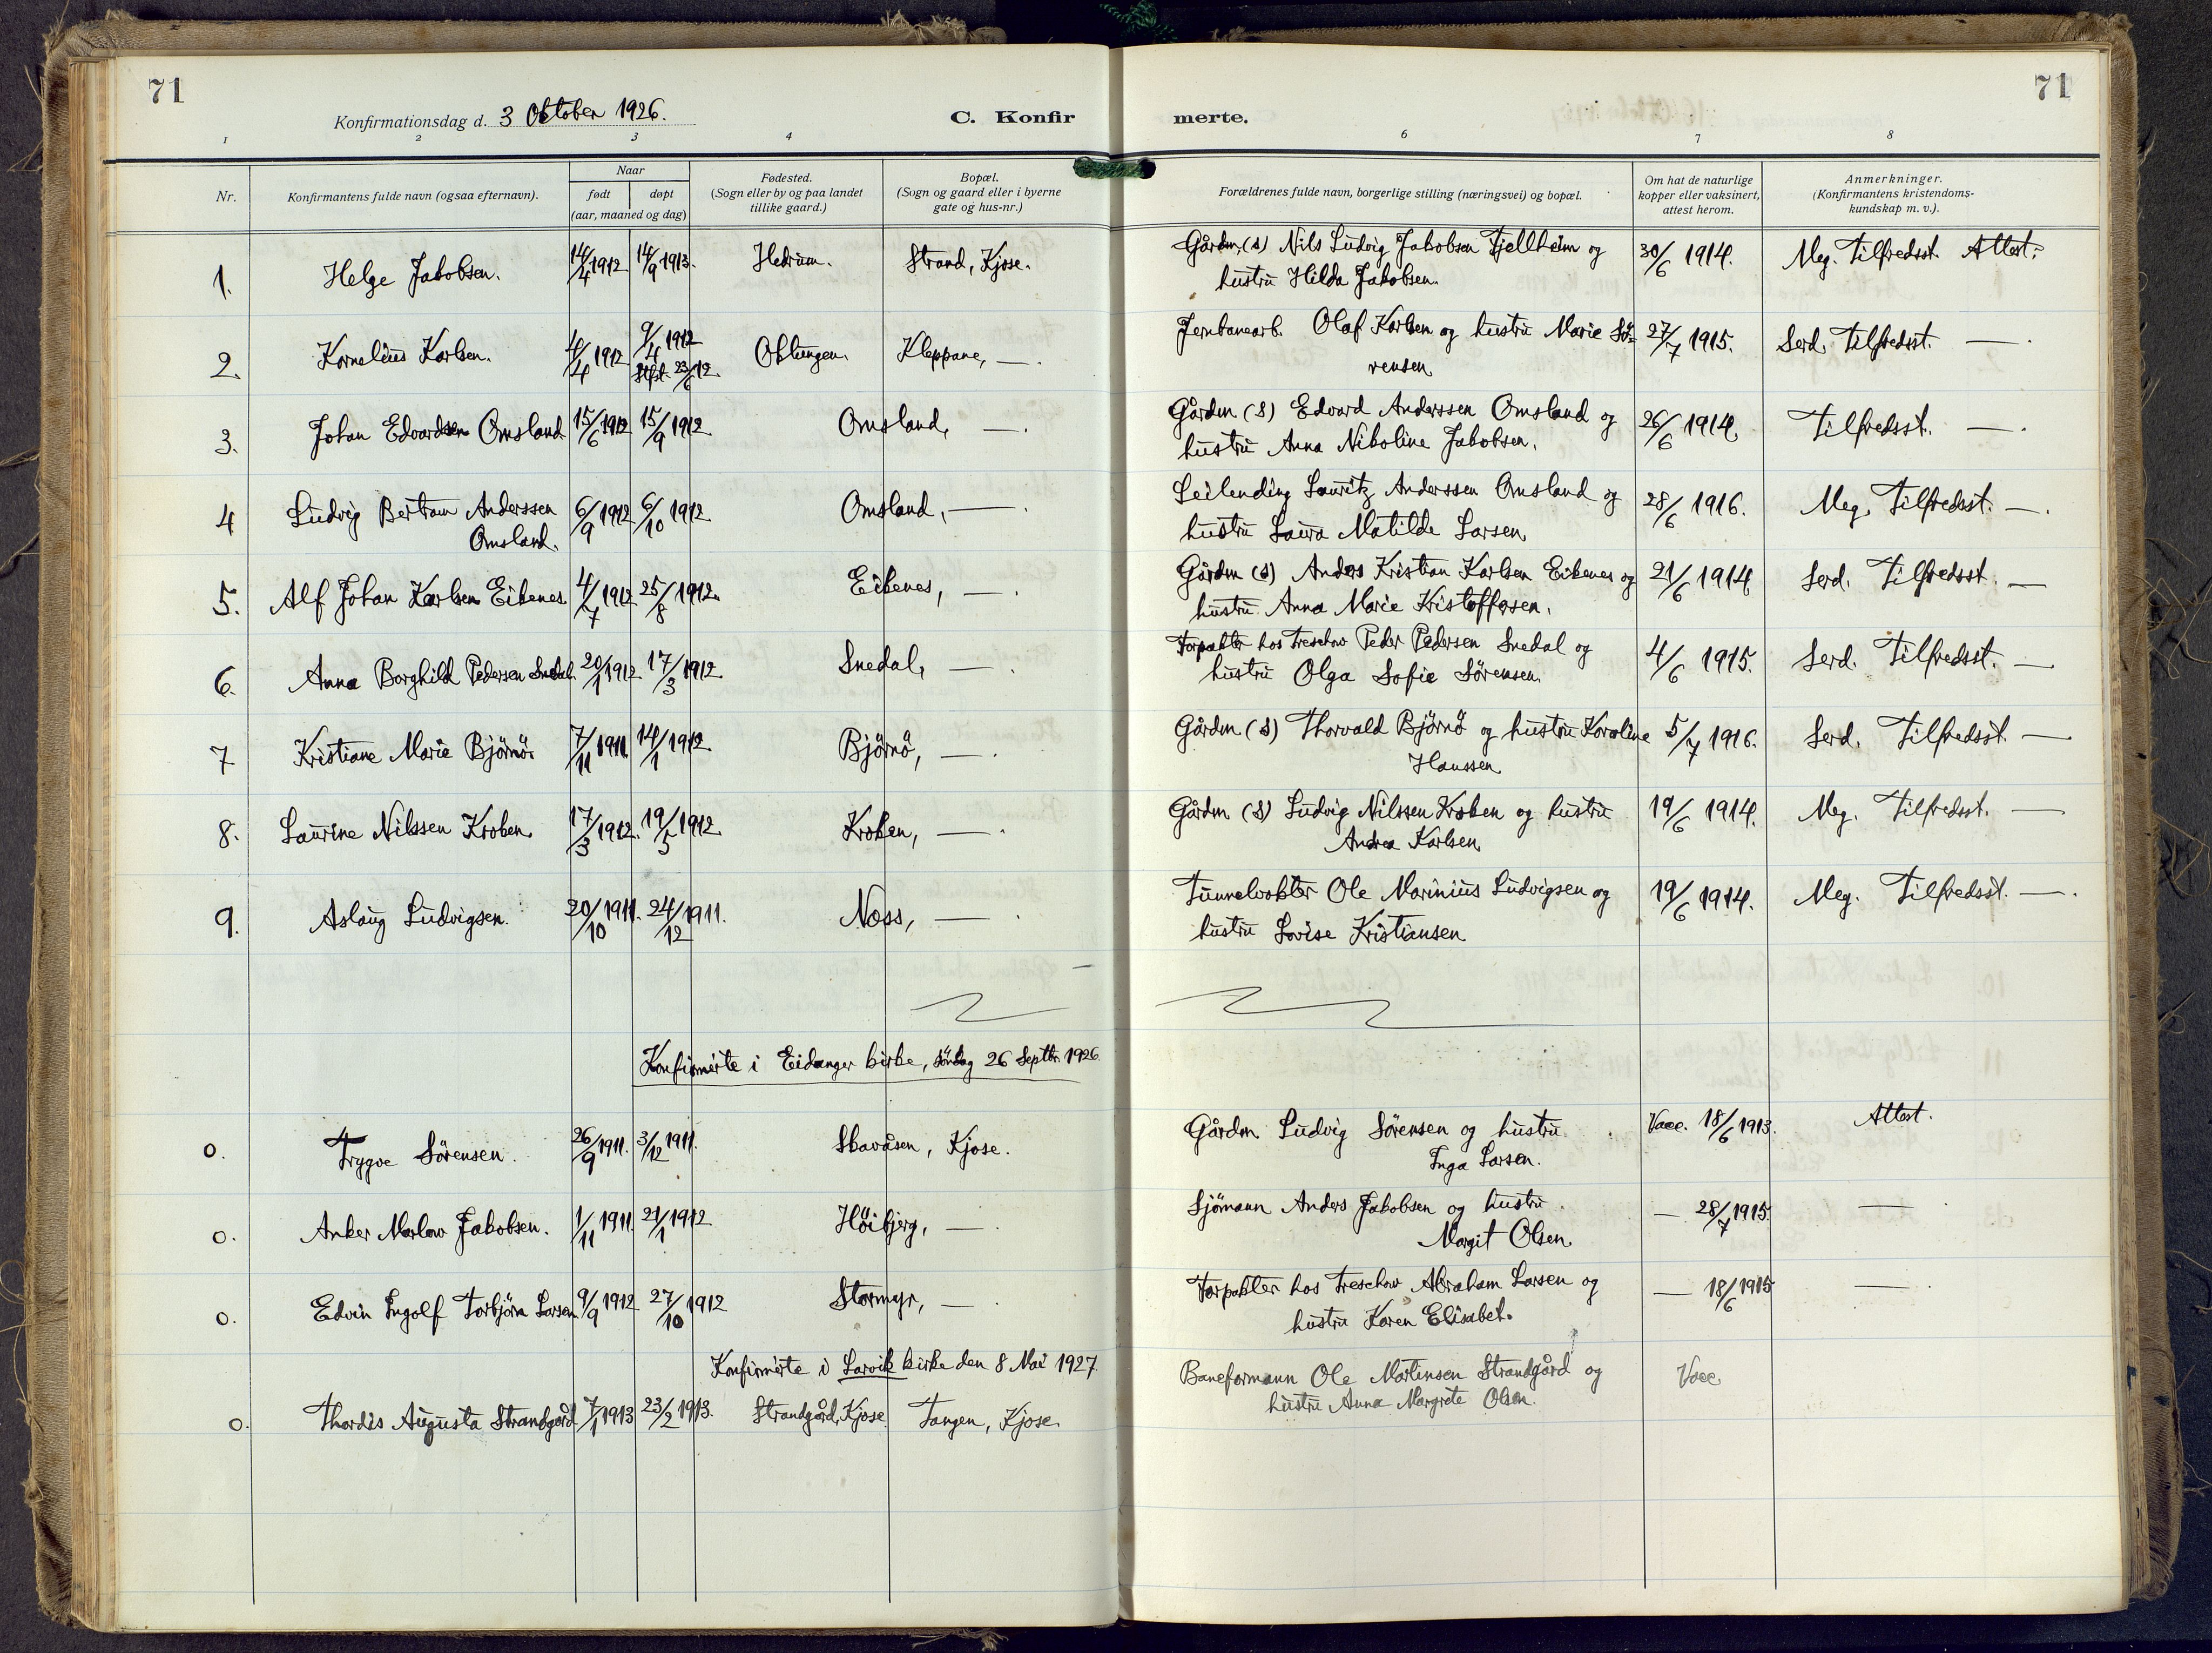 71
71
Konfirmationsdag d. 3 Oktober 1926.
C. Konfir merte.
1 2 3 4 6 7 8
Nr.
Konfirmantens fulde navn (ogsaa efternavn).
Naar
født døpt
(aar, maaned og dag)
Fødested.
(Sogn eller by og paa landet
tillike gaard.)
Bopæl.
(Sogn og gaard eller i byerne
gate og hus-nr.)
Forældrenes fulde navn, borgerlige stilling (næringsvei) og bopæl.
Om hat de naturlige
kopper eller vaksinert,
attest herom.
Anmerkninger.
(Konfirmantens kristendoms-
kundskap m. v.).
1. Helge Jakobsen. 14/4 1912 14/9 1913. Hedrum. Strand, Kjose. Gårdm. (s) Nils Ludvig Jakobsen Fjellheim og 30/6 1914. Meg. Tilfredsst. Attest.
hustru Hilda Jakobsen.
2. Kornelius Karlsen. 4/4 1912 9/4 1912 Oklungen. Kleppane, —. Jernbanearb. Olaf Karlsen og hustru Marie Sö- 27/7 1915. Serd. Tilfredsst. —.
Stfst. 23/6 12. rensen
3. Johan Edvardsen Omsland 15/6 1912 15/9 1912 Omsland, —. Gårdm (S) Edvard Anderssen Omsland og 26/6 1914. Tilfredsst. —.
hustru Anna Nikoline Jakobsen.
4 Ludvig Bertram Anderssen 6/9 1912 6/10 1912 Omsland, —. Leilending Lauritz Anderssen Omsland og 28/6 1916. Meg. Tilfredsst. —.
Omsland. hustru Laura Matilde Larsen
5. Alf Johan Karlsen Eikenes. 4/7 1912 25/8 1912. Eikenes, —. Gårdm (S) Anders Kristian Karlsen Eikenes og 21/6 1914 Serd. Tilfredsst. —
hustru Anna Marie Kristoffersen.
6. Anna Borghild Pedersen Snedal 20/1 1912 17/3 1912 Snedal, —. Forpakter hos Treschow Peder Pedersen Snedal og 4/6 1915. Serd. Tilfredsst. —
hustru Olga Sofie Sörensen.
7 Kristiane Marie Björnö. 7/11 1911 14/1 1912 Björnö, —. Gårdm (S) Thorvald Björnö og hustru Karoline 5/7 1916. Serd. Tilfredsst. —
Hanssen
8. Laurine Nilssen Kroken 17/3 1912. 19/5 1912 Kroken, —. Gårdm (S) Ludvig Nilssen Kroken og hustru 19/6 1914. Meg. Tilfredsst. —
Andrea Karlsen
9. Aslaug Ludvigsen. 20/10 1911. 24/12 1911. Næss, —. Tunnelvakter Ole Marinius Ludvigsen og 19/6 1914. Meg. Tilfredsst. —.
hustru Lovise Kristiansen
Konfirmerte i Eidanger kirke, söndag 26 Septbr. 1926
0. Trygve Sörensen. 26/9 1911. 3/12 1911. Skavåsen, Kjose. Gårdm Ludvig Sörensen og hustru Vacc. 18/6 1913. Attest.
Inga Larsen.
0. Anker Marlow Jakobsen. 1/11 1911. 21/1 1912 Höibjerg, —. Sjömann Anders Jakobsen og hustru — 28/7 1915. —
Margit Olsen
0. Edvin Ingolf Torbjörn Larsen 9/9 1912 27/10 1912 Stormyr, —. Forpakter hos Treschow Abraham Larsen og — 18/6 1915 —
hustru Karen Elisabet.
Konfirmerte i Larvik kirke den 8 Mai 1927.
0. Thordis Augusta Strandgård 7/1 1913 23/2 1913. Strandgård, Kjose Tangen, Kjose. Baneformann Ole Martinsen Strandgård og Vacc
hustru Anna Margrete Olsen.